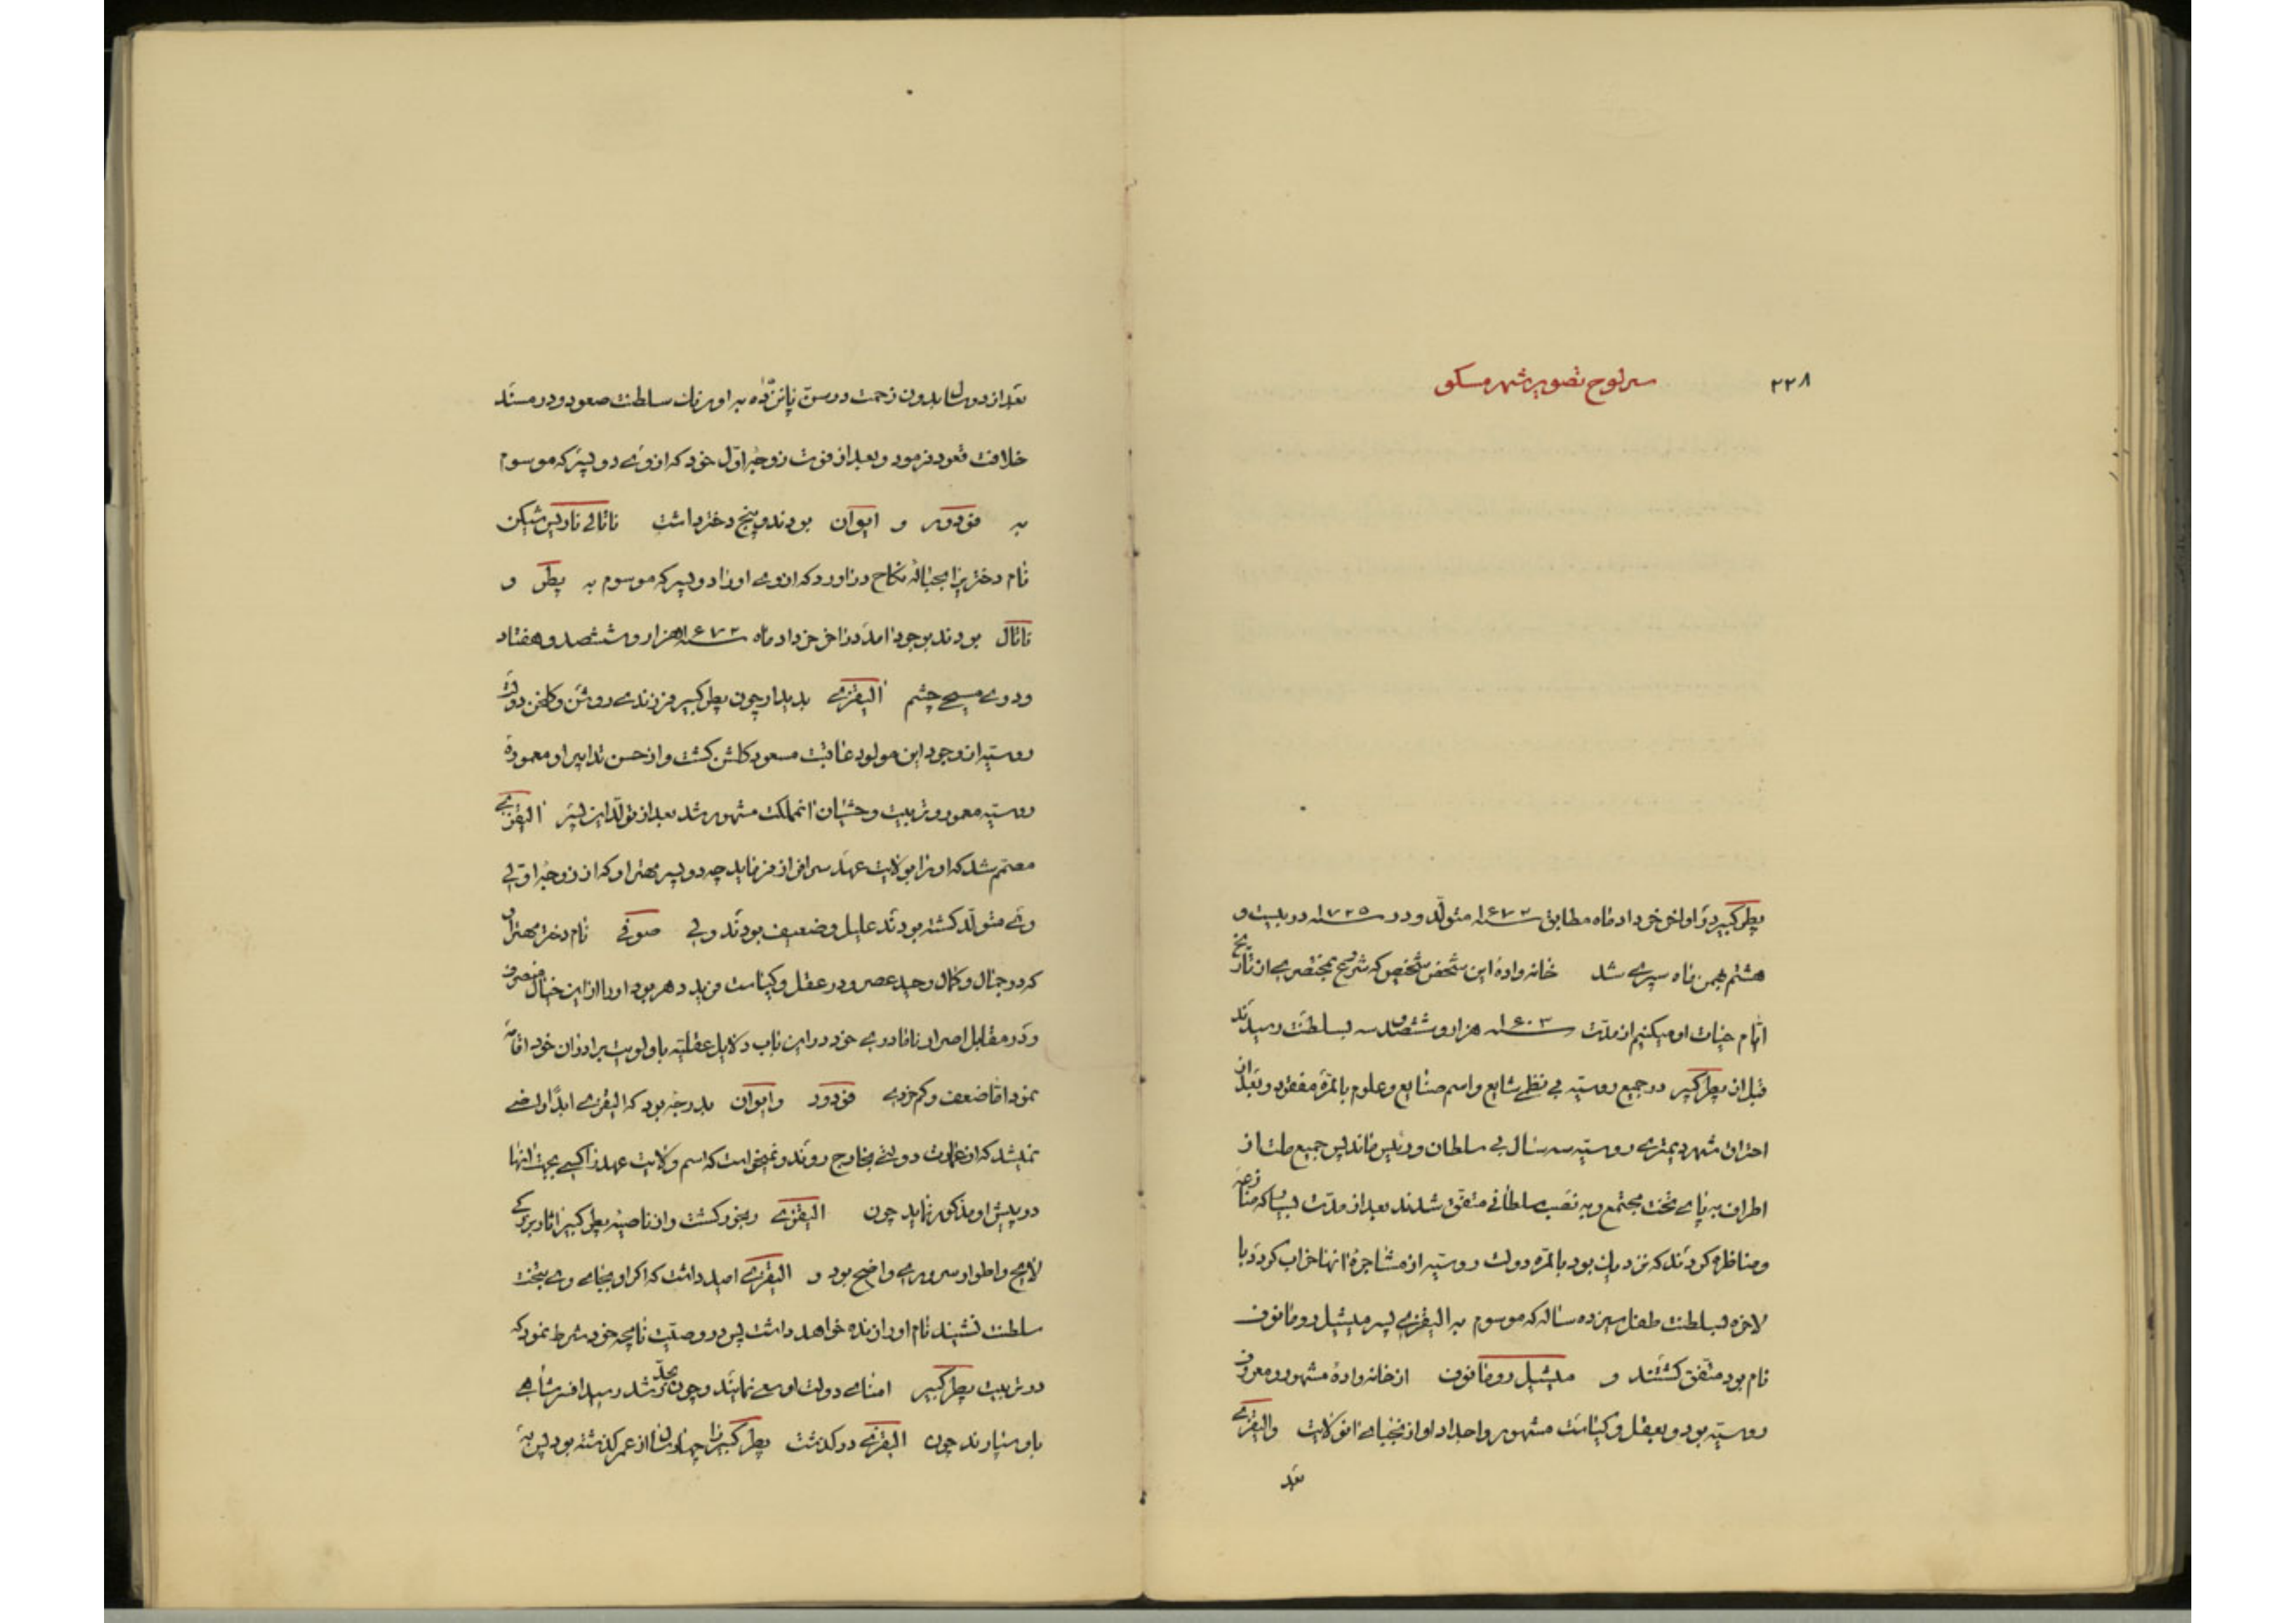 ۲۲۸
سرلوح تصویر شهر مسکو
پطر کبیر در اواخر خرداد ماه مطابق سنه ۱۶۷۲ متولّد و در سنه ۱۷۲۵ در بیست و
هشتم بهمن ماه سپری شد خانواده این شخص شخیص که شروع بمختصری از تاریخ
ایّام حیات او میکنیم از مدّت سنه ۱۶۰۳ هزار و ششصد و سه بسلطنت رسیدند
قبل از پطر کبیر در جمیع روسیّه بی نظمی شایع و اسم صنایع و علوم بالمرّه مفقود و بعد از
احتراق شهر دیمتری روسیّه سه سال بی سلطان و رئیس ماند پس جمیع ملت از
اطراف به پای تخت مجتمع و به نصب سلطانی متفق شدند بعد از مدّت بسیار که منازعه
و مناظره کردند که نزدیک بود بالمرّه دولت روسیّه از مشاجرهٔ آنها خراب گردد با
لاخره بسلطنت طفل سیزده ساله که موسوم به الیقزی پسر میشیل رومانوف
نام بود متّفق گشتند و میشیل رومانوف از خانوادهٔ مشهور و معروف
روسیّه بود و بعقل و کیاست مشهور و اجداد او از نجبای آنولایت و الیقزی
بعد
بعد از دو سال بدون زحمت در سنّ پانزده به اورنک سلطنت صعود و در مسند
خلافت قعود فرمود و بعد از فوت زوجهٔ اوّل خود که از وی دو پسر که موسوم
به فودور و ایوان بودند و پنج دختر داشت ناتالی ناریس شکین
نام دختریرا بحبالهٔ نکاح در آورد که از وی اورا دو پسر که موسوم به پطر و
ناتال بودند بوجود آمد در آخر خرداد ماه سنه ۱۶۷۲ هزار و ششصد و هفتاد
و دوی مسیحی چشم الیقزی بدیدار چون پطر کبیر فرزندی روشن و کلخن دولت
روسیّه از وجود این مولود عاقبت مسعود کلشن کشت و از حسن تدابیر او معمورهٔ
روسیّه معمور و تربیت وحشیان آنمملکت مشهور شد بعد از تولّد این پسر الیقزی
مصمّم شد که اورا بولایت عهد سرافراز فرماید چه دو پسر مهتر او که از زوجهٔ اوّلی
وی متولّد کشته بودند علیل و ضعیف بودند ولی صوفی نام دختر مهتر او
که در جمال و کمال وحید عصر و در عقل و کیاست فرید دهر بود اورا از این خیال منصرف
و در مقابل اصرار نامادری خود در این باب دلایل عقلیّه باولویت برادران خود اقامه
نمود امّا ضعف و کم خردی فودور و ایوان بدرجهٔ بود که الیقزی ابداً راضی
نمیشد که از عمارت دولتی بخارج روند و نمیخواست که اسم ولایت عهد را کسی بجهت آنها
در پیش او مذکور نماید چون الیقزی رنجور کشت و از ناصیهٔ پطر کبیر آثار بزرکی
لایح و اطوار سروری واضح بود و الیقزی امید داشت که اکر او بجای وی بتخت
سلطنت نشیند نام اورا زنده خواهد داشت پس در وصیّت نامچه خود شرط نمود که
در تربیت پطر کبیر امنای دولت او سعی نمایند و چون بحدّ رشد رسید افسر شاهی
باو سپارند چون الیقزی در گذشت پطر کبیر را چهار سال از عمر گذشته بود پس به